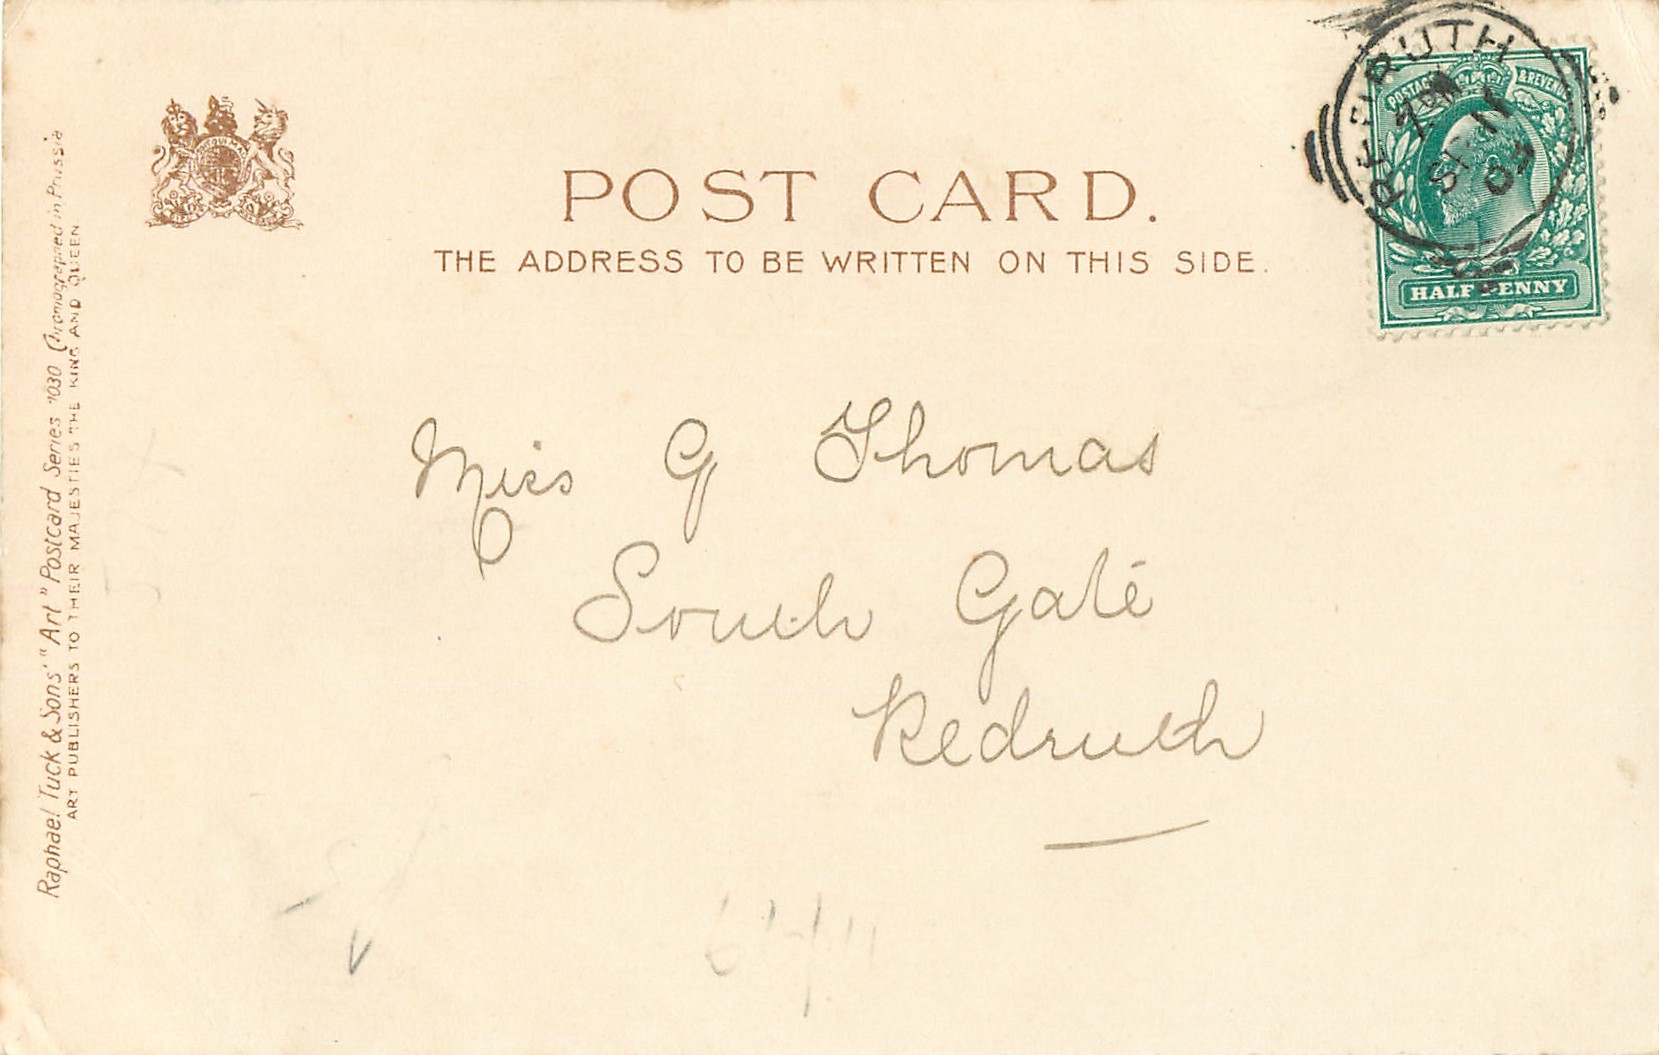 POST CARD.
THE ADDRESS TO BE WRITTEN ON THIS SIDE.
REDRUTH
SP 11
03
POSTAGE & REVENUE
HALFPENNY
Miss G Thomas
South Gate
Redruth
Raphael Tuck & Sons' "Art" Postcard Series 1030 Chromographed in Prussia
ART PUBLISHERS TO THEIR MAJESTIES THE KING AND QUEEN